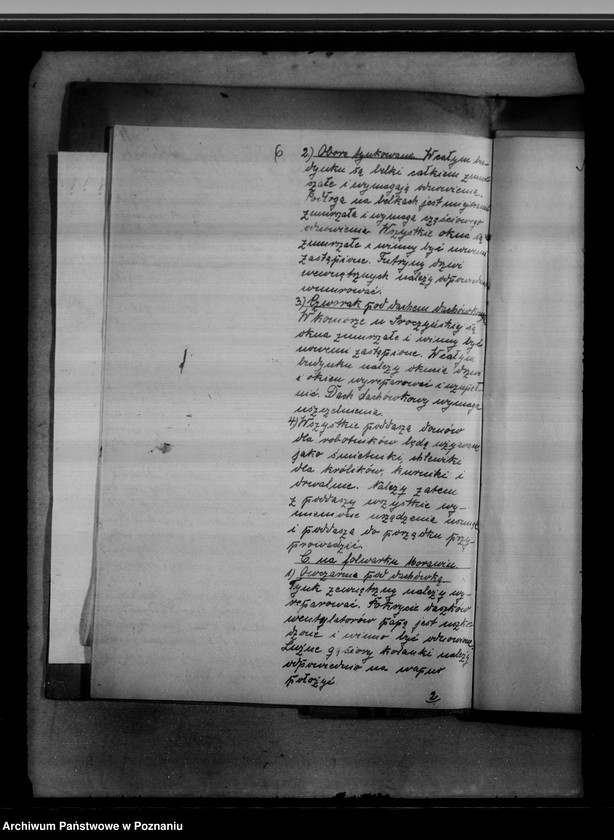 6
2) Obora tynkowana. W całym bu-
dynku są belki całkiem zmur-
szałe i wymagają odnowienia.
Podłoga na belkach jest
zmurszała i wymaga częściowego
odnowienia. Wszystkie okna są
zmurszałe i winny być nowemi
zastąpione. Futryny drzwi
wewnętrznych należy odpowiednio
wmurować.
3) Czworak pod dachem dachówkowym
W komorze u Iroczyńskiej są
okna zmurszałe i winny być
nowemi zastąpione. W całym
budynku należy okucia drzwi
i okien wyreparować i uzupeł-
nić. Dach dachówkowy wymaga
uszczelnienia.
4) Wszystkie poddasza domów
dla robotników będą używane
jako śmietniki, chlewiki
dla królików, kurniki i
drwalnie. Należy zatem
z poddaszy wszystkie wy-
mienione urządzenia usunąć
i poddasza do porządku przy-
prowadzić.
C na folwarku Morawin
1) Owczarnia pod dachówką
Tynk zewnętrzny należy wy-
reparować. Pokrycie daszków
wentylatorów papą jest uszko-
dzone i winno być odnowione.
Luźne gąsiory kolanki należy
odpowiednio na wapno
położyć
2
Archiwum Państwowe w Poznaniu